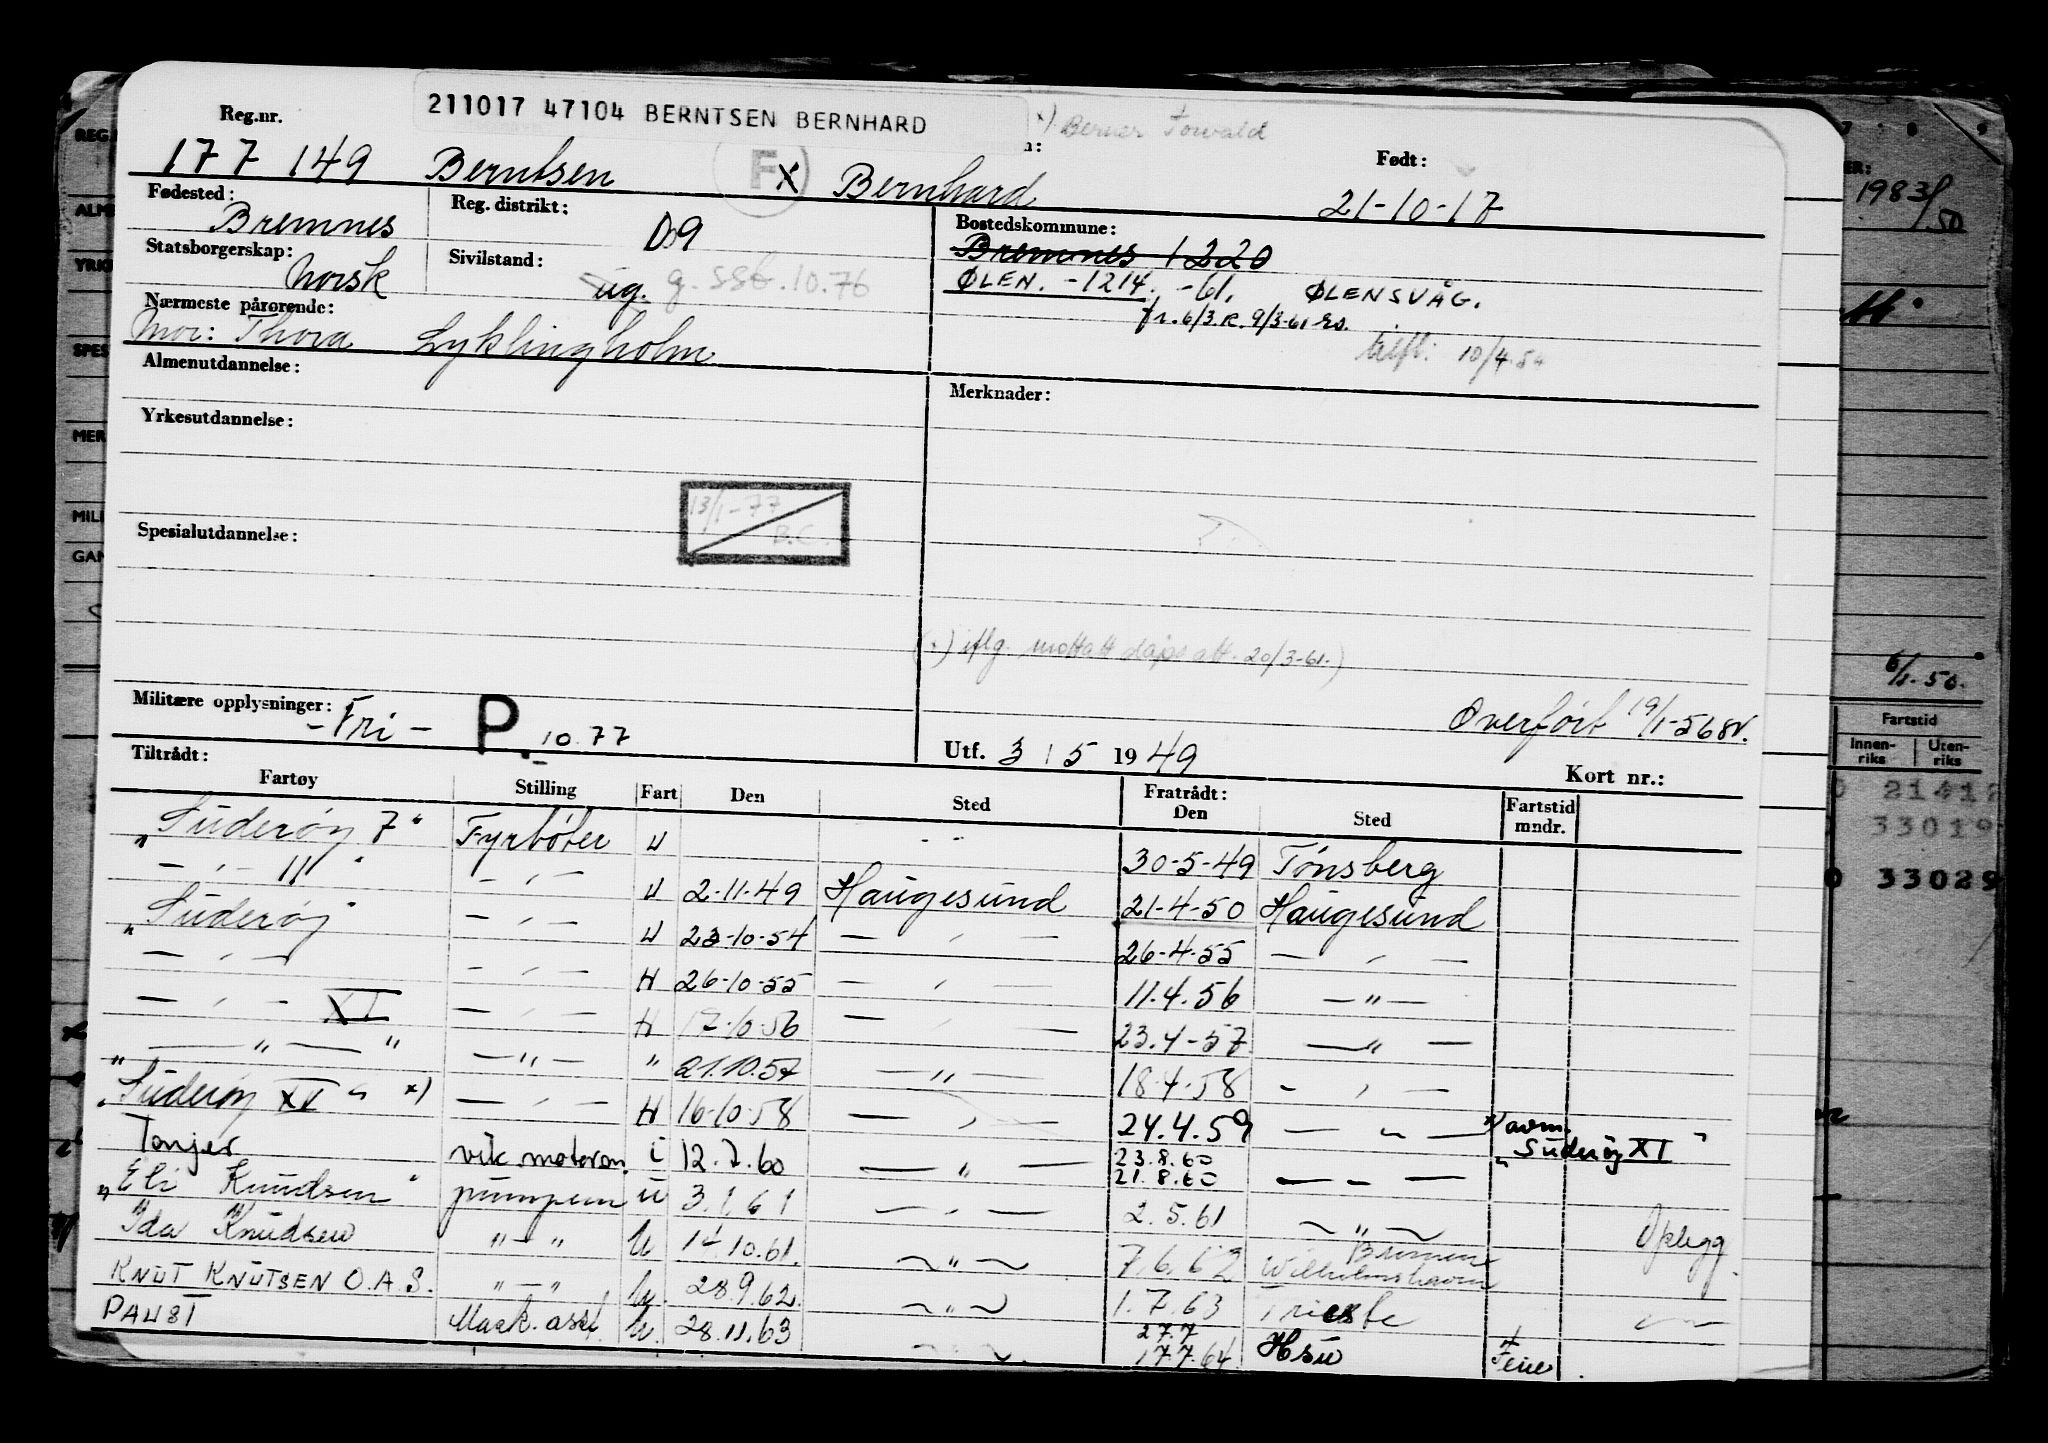 211017 47104 BERNTSEN BERNHARD
x) Berner Towald
Reg.nr.
Født:
177 149 Berntsen F x Bernhard 21-10-17
Fødested: Bremnes
Reg. distrikt: 09
Bostedskommune:
Bremnes 1220
Statsborgerskap: Norsk
Sivilstand: ug. g. SSB. 10.76
ØLEN. -1214. -61. ØLENSVÅG.
fr. 6/3. R. 9/3-61
10/4.84
Nærmeste pårørende:
Mor: Thora Lyklingholm
Almenutdannelse:
Merknader:
Yrkesutdannelse:
13/1-77
B.C.
Spesialutdannelse:
iflg. mottatt dåps att. 20/3-61.)
Militære opplysninger: -Fri- P. 10.77
Overført 19/1-56
Utf. 3 / 5 1949
Kort nr.:
Tiltrådt:
Fartøy Stilling Fart Den Sted Fratrådt: Den Sted Fartstid mndr.
"Suderøy 7" Fyrbøter U - " - 30-5-49 Tønsberg
— " — 11 " — " — U 2-11-49 Haugesund 21-4-50 Haugesund
"Suderøy" — " — U 23-10-54 — " — 26-4-55 — " —
— " — — " — H 26-10-55 — " — 11.4.56 — " —
— " — XI — " — H 17-10-56 — " — 23.4-57 — " —
" — " — " — " — " 21.10.57 — " — 18-4-58 — " —
"Suderøy XV" x) — " — H 16-10-58 — " — 24.4.59 — " — x) avm. "Suderøy XI"
Tonjer vik. motorm. i 12.7.60 — " — 23.8.60 21.8.60 — " —
"Eli Knudsen" pumpem u 3.1.61 — " — 2.5.61 — " — Opplegg
"Ida Knudsen" " — " U 14.10.61. — " — 7.6.62 Wilhelmshaven
KNUT KNUTSEN O.A.S. " — " U. 28.9.62. — " — 1.7.63 Trieste — " —
PAUST Mask. asst U. 28.11.63 — " — 27.7 17.7.64 Hsu Ferie.
1983/50
6/1-50.
Fartstid
Innen-riks Uten-riks
21412
33019
33029